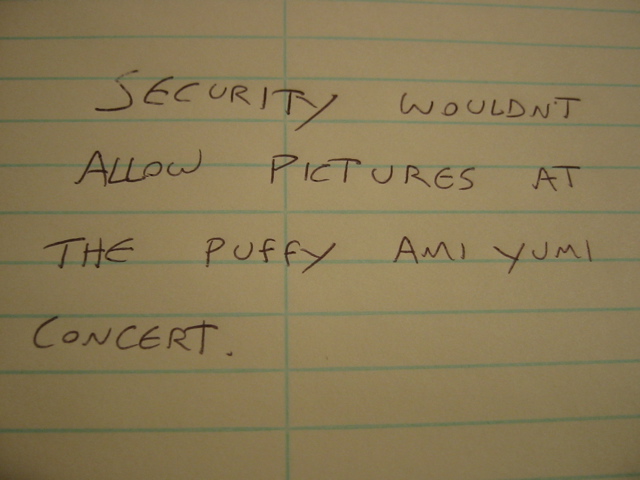 SECURITY WOULDN'T
ALLOW PICTURES AT
THE PUFFY AMI YUMI
CONCERT.